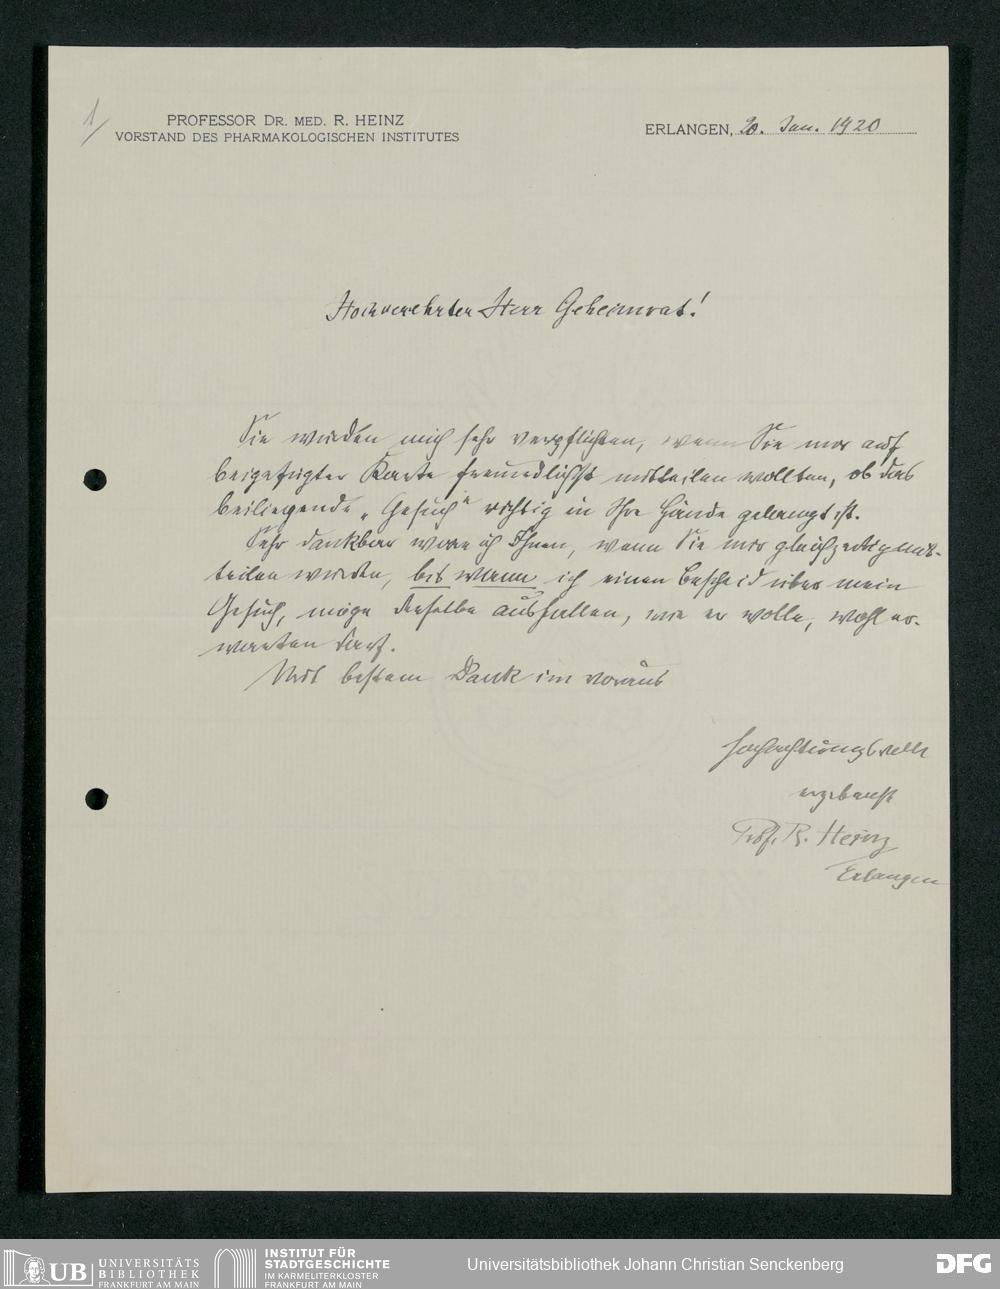 1/
PROFESSOR DR. MED. R. HEINZ
VORSTAND DES PHARMAKOLOGISCHEN INSTITUTES
ERLANGEN, 20. Jan. 1920
Hochverehrter Herr Geheimrat!
Sie würden mich sehr verpflichten, wenn Sie mir auf
beigefügter Karte freundlichst mitteilen wollten, ob das
beiliegende „Gesuch“ richtig in Ihre Hände gelangt ist.
Sehr dankbar wäre ich Ihnen, wenn Sie mir gleichzeitig mit-
teilen würden, bis wann ich einen Bescheid über mein
Gesuch, möge derselbe ausfallen, wie er wolle, wohl er-
warten darf.
Mit bestem Dank im voraus
hochachtungsvollst
ergebenst
Prof. R. Heinz
Erlangen
UB UNIVERSITÄTS
BIBLIOTHEK
FRANKFURT AM MAIN
INSTITUT FÜR
STADTGESCHICHTE
IM KARMELITERKLOSTER
FRANKFURT AM MAIN
Universitätsbibliothek Johann Christian Senckenberg
DFG